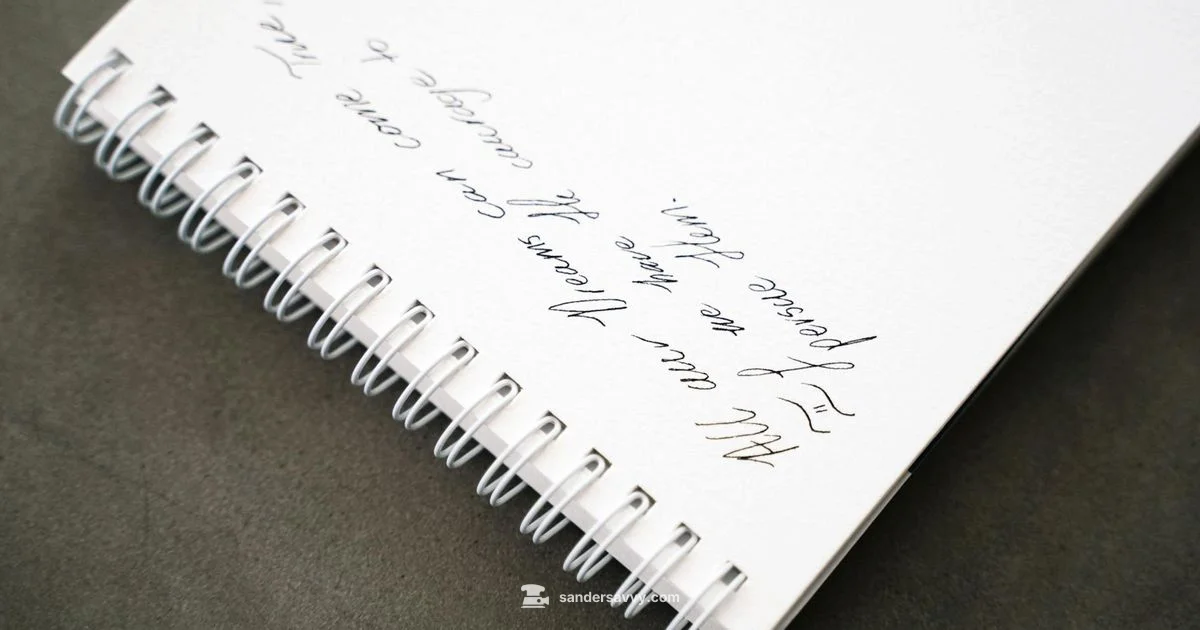 All our Dreams can come True,
If we have the courage to
persue them.
sandersavvy.com